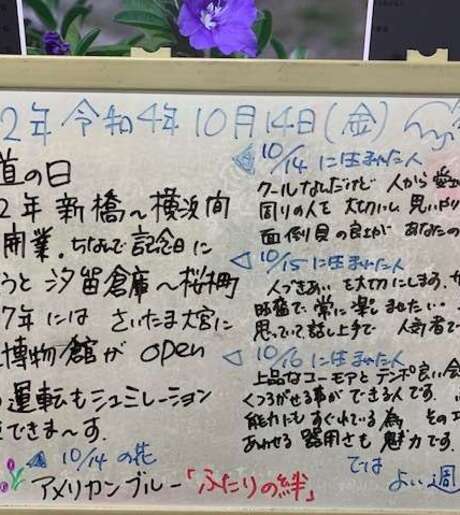 2年 令和4年 10月14日(金)
道の日
2年 新橋〜横浜間
開業。ちなんで記念日に
うと 汐留倉庫〜桜木町
7年には さいたま大宮に
博物館が open
運転もシュミレーション
できま〜す。
10/14 の花
アメリカンブルー「ふたりの絆」
10/14 に生まれた人
クールなんだけど 人から愛
周りの人を 大切にし、思いやり
面倒見の良さが あなたの
10/15 に生まれた人
人づきあいを大切にします。
常に 楽しませたい…
思っていて 話し上手で 人気者で
10/16 に生まれた人
上品なユーモアと テンポ良い会
くつろがせる事が できる人です。
能力にもすぐれている為、その
あわせる 器用さも 魅力です。
では よい週